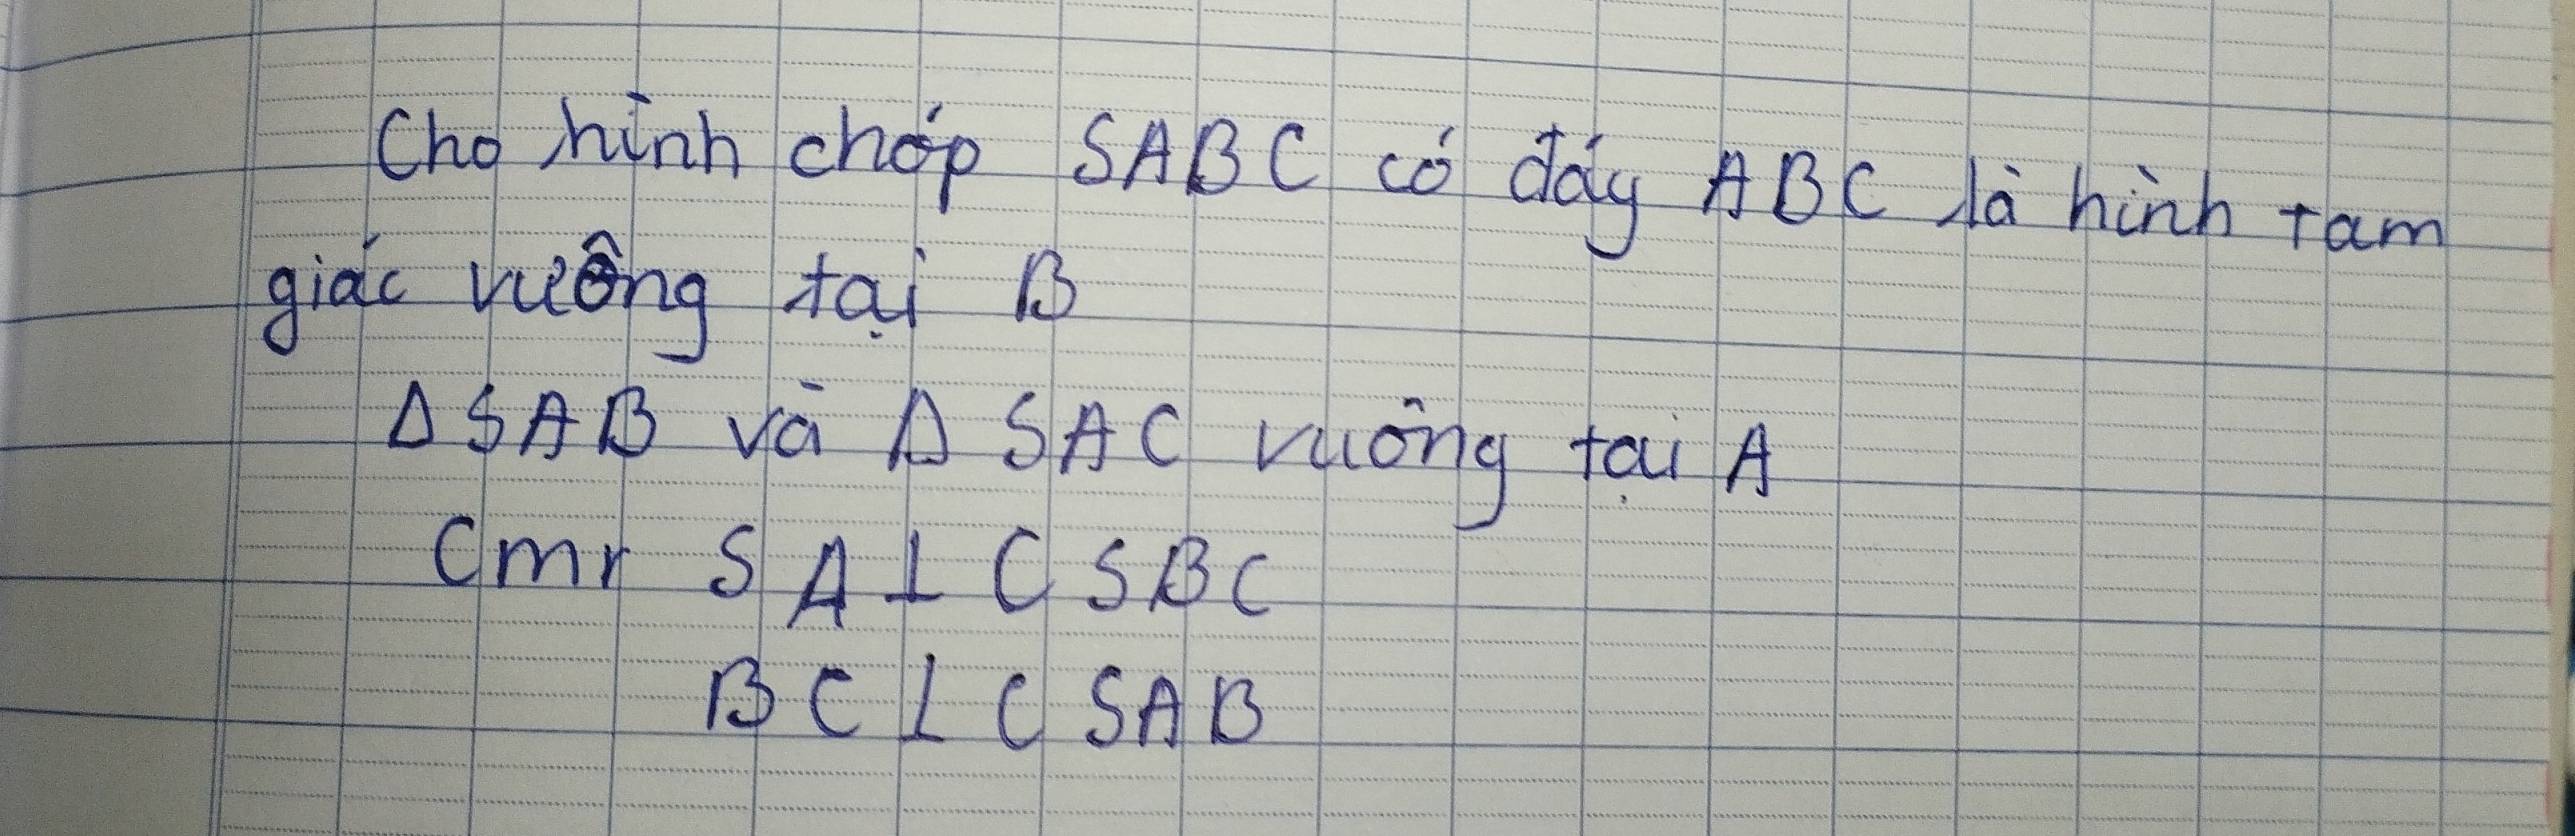 Cho hình chóp SABC có đáy ABC là hình tam
giác vuông tại B
Δ SAB và Δ SAC vuông tại A
Cmr SA ⊥ ( SBC
BC ⊥ ( SAB